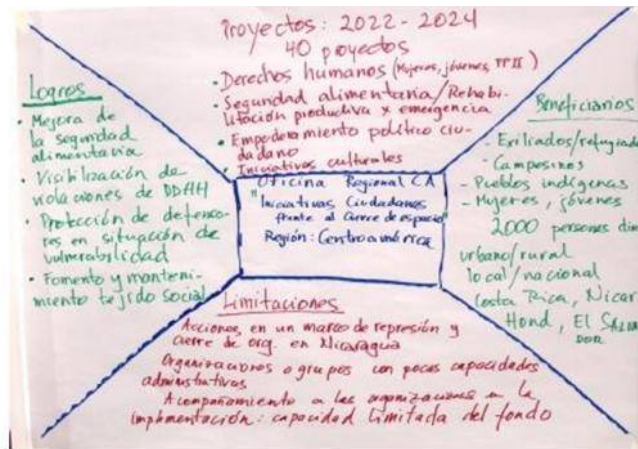 Proyectos: 2022-2024
40 proyectos
• Derechos humanos (Mujeres, jóvenes, PPII)
• Seguridad alimentaria/Rehabi-
litación productiva x emergencia
• Empoderamiento político ciu-
dadano
• Iniciativas culturales
Logros
• Mejora de
la seguridad
alimentaria
• Visibilización de
violaciones de DDHH
• Protección de defenso-
res en situación de
vulnerabilidad
• Fomento y manteni-
miento tejido social
Oficina Regional CA
"Iniciativas Ciudadanas
frente al cierre de espacio"
Región: Centroamérica
Beneficiarios
- Exiliados/refugiad
- Campesinos
- Pueblos indígenas
- Mujeres, jóvenes
2000 personas
urbano/rural
local/nacional
Costa Rica, Nicar
Hond, El Salva
dor
Limitaciones
Acciones en un marco de represión y
cierre de org. en Nicaragua
Organizaciones o grupos con pocas capacidades
administrativas
Acompañamiento a las organizaciones en la
implementación: capacidad limitada del fondo